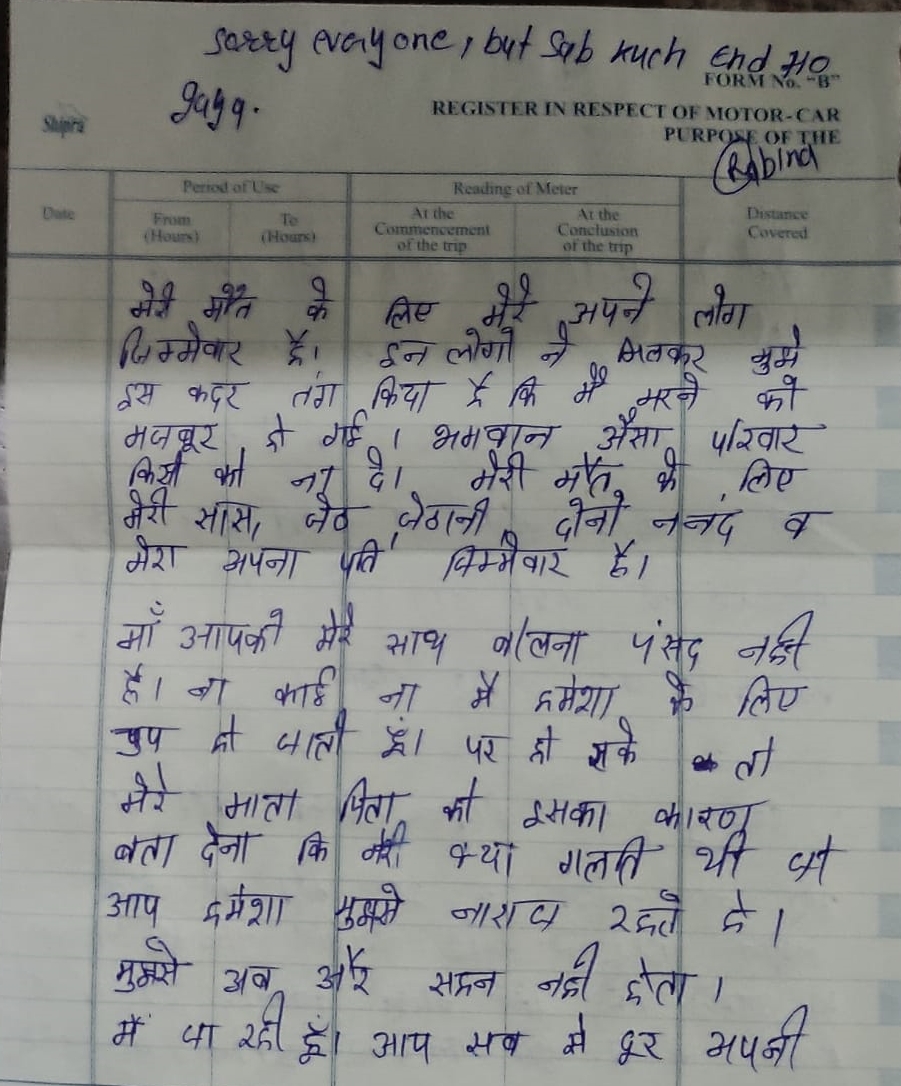 sorry everyone, but Sab kuch End HO
gaya.
FORM No. "B"
Shipra
REGISTER IN RESPECT OF MOTOR-CAR
PURPOSE OF THE
Rabind
Date
Period of Use
Reading of Meter
From (Hours)
To (Hours)
At the Commencement of the trip
At the Conclusion of the trip
Distance Covered
मेरी मौत के लिए मेरे अपने लोग
जिम्मेवार है। इन लोगो ने मिलकर मुझे
इस कदर तंग किया है कि मैं मरने को
मजबूर हो गई। भगवान ऐसा परिवार
किसी को ना दे। मेरी मौत के लिए
मेरी सास, जेठ, जेठानी, दोनो ननंद व
मेरा अपना पति जिम्मेवार है।
माँ आपको मेरे साथ बोलना पंसद नही
है। ना कोई ना मै हमेशा के लिए
चुप हो जाती हूं। पर हो सके तो
मेरे माता पिता को इसका कारण
बता देना कि मेरी क्या गलती थी जो
आप हमेशा मुझसे नाराज रहते हे।
मुझसे अब और सहन नही होता।
मैं जा रही हूँ। आप सब से दूर अपनी